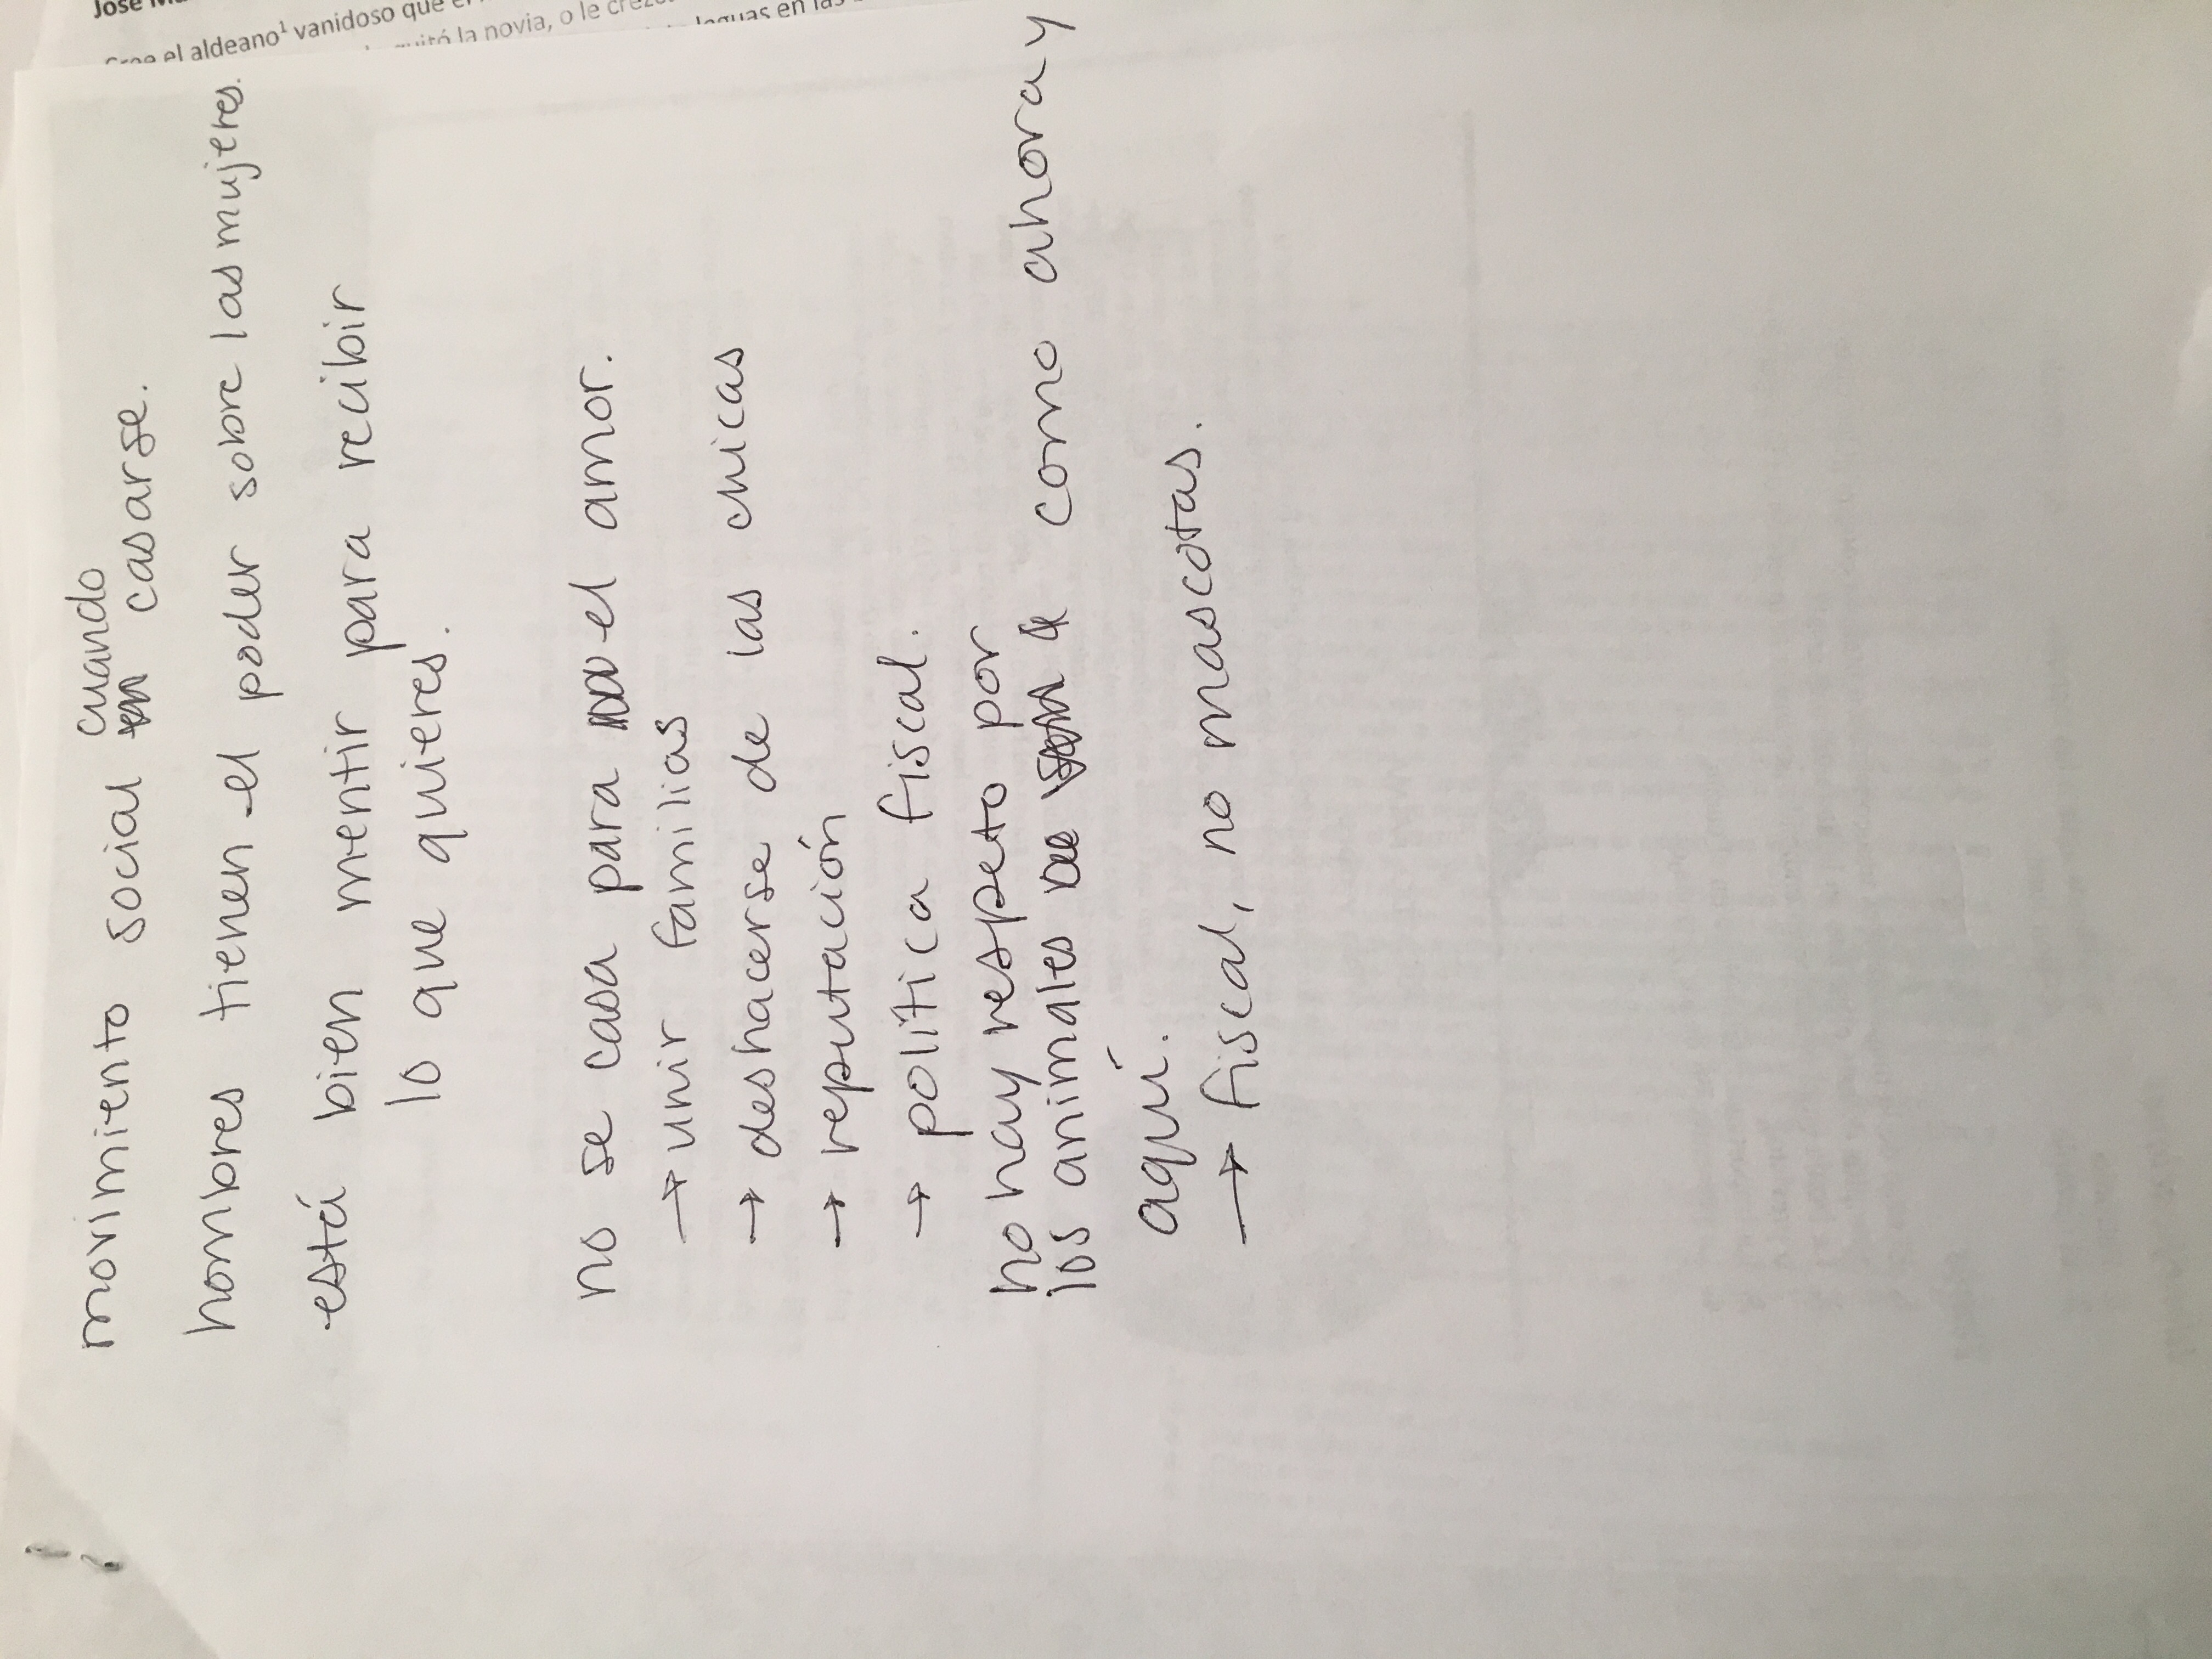 movimiento social cuando casarse.
hombres tienen el poder sobre las mujeres.
está bien mentir para recibir
lo que quieres.
no se casa para el amor.
→ unir familias
→ deshacerse de las chicas
→ reputación
→ política fiscal.
no hay respeto por
los animales como ahora y
aquí.
→ fiscal, no mascotas.
José
el aldeano¹ vanidoso que
la novia, o le
en las